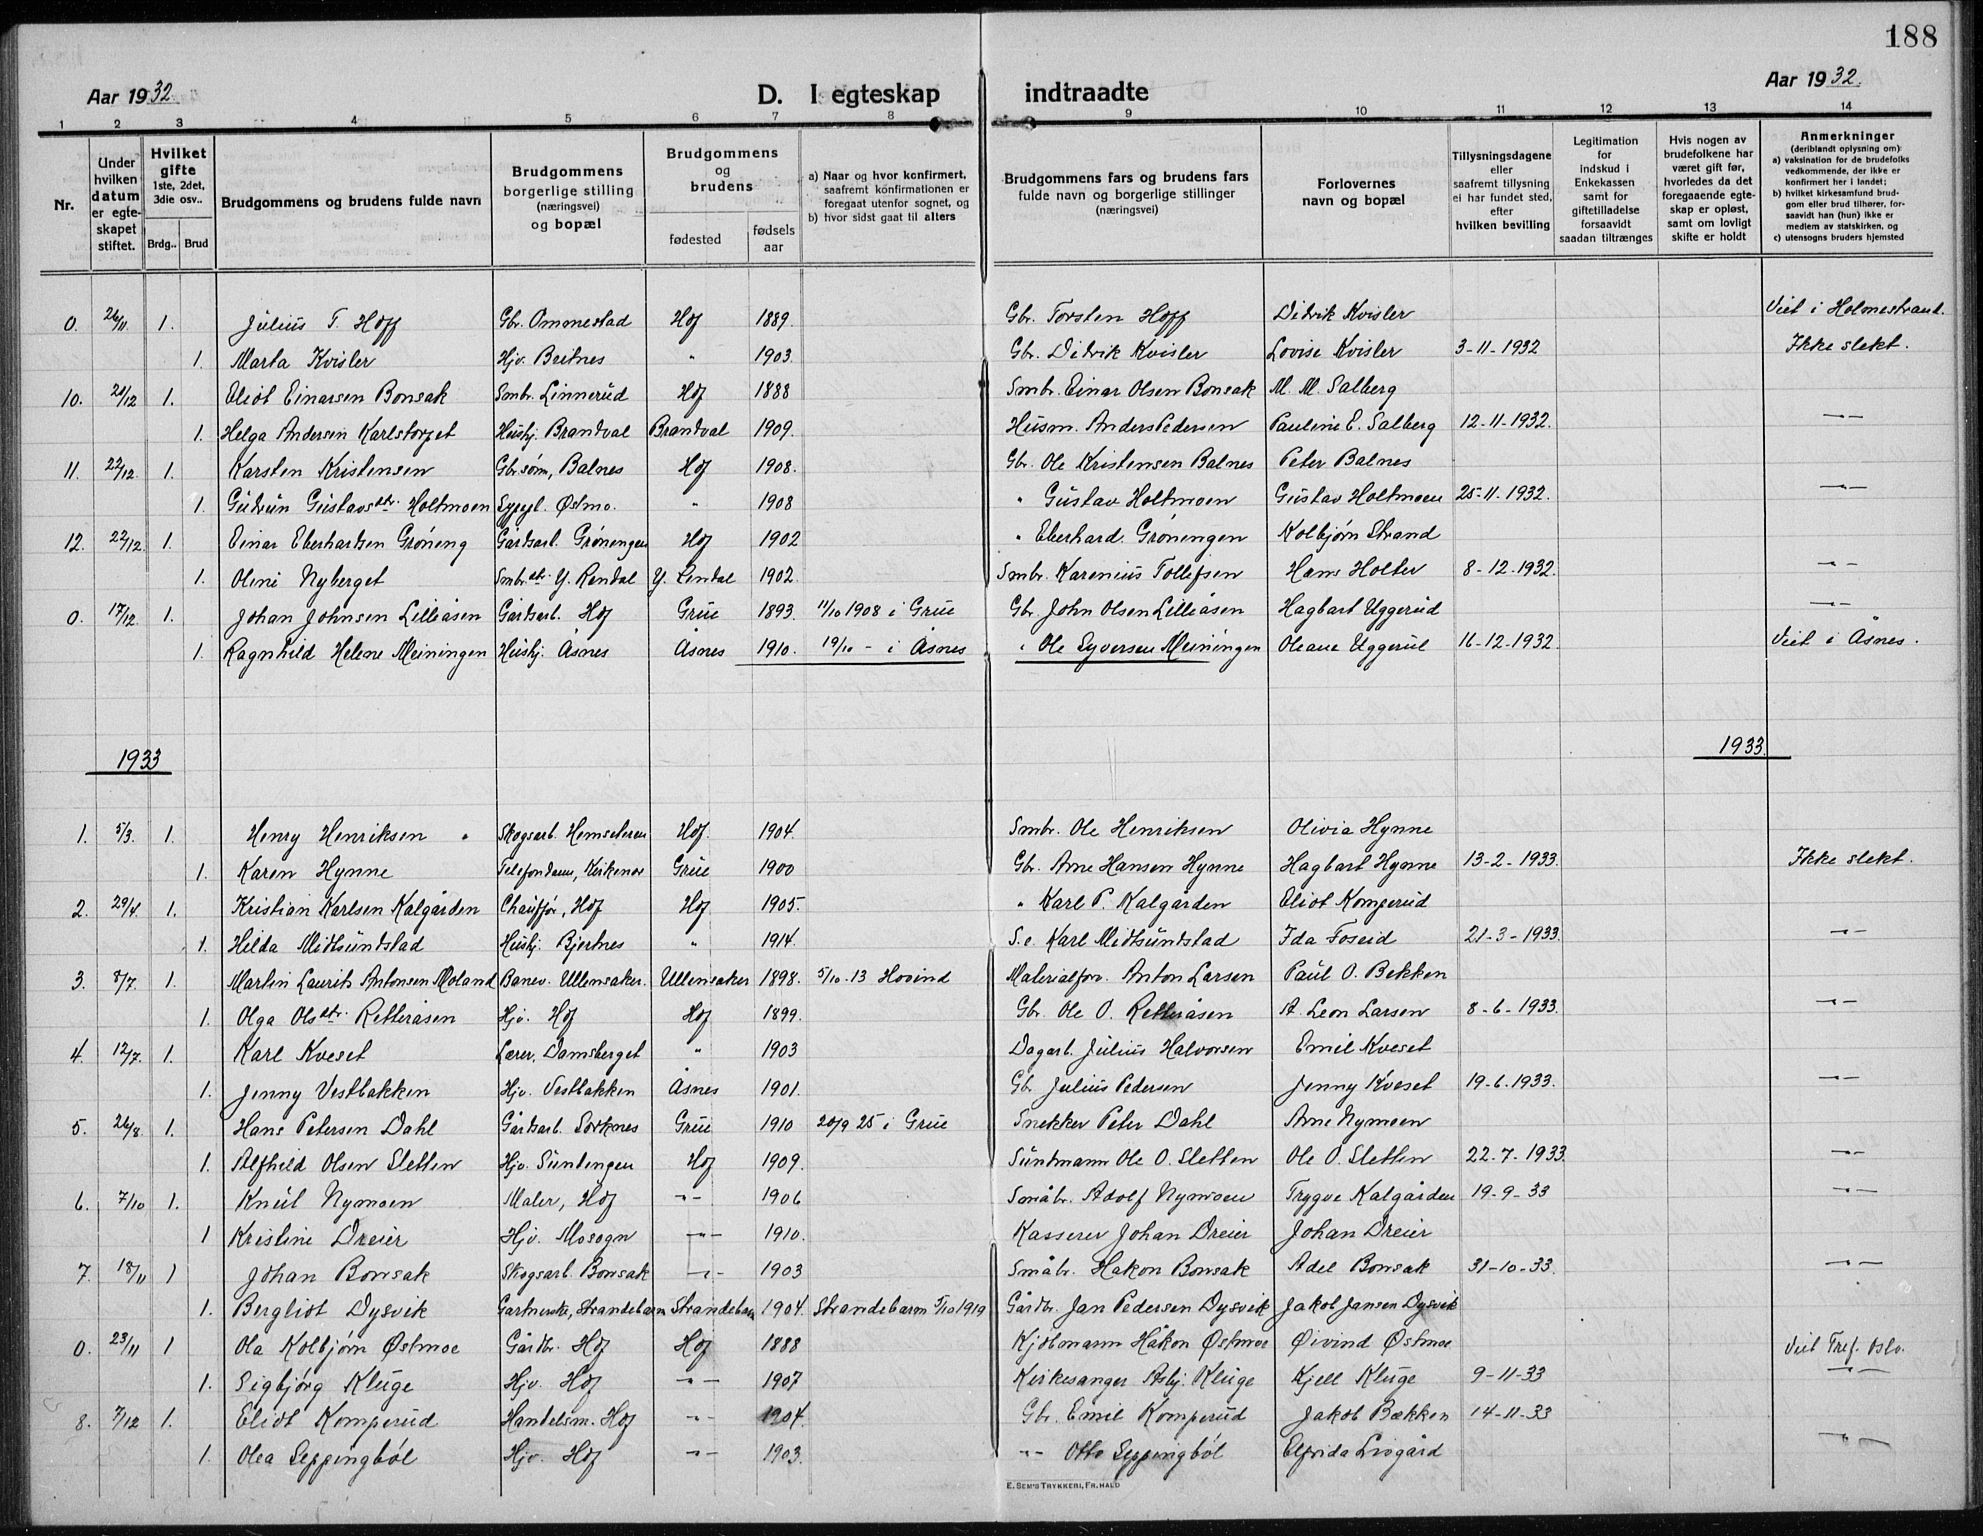 188
Aar 1932
D. I egteskap indtraadte
Aar 1932.
1 2 3 4 5 6 7 8 9 10 11 12 13 14
Nr.
Under hvilken datum er egteskapet stiftet.
Hvilket gifte 1ste, 2det, 3die osv..
Brdg.. Brud
Brudgommens og brudens fulde navn
Brudgommens borgerlige stilling (næringsvei) og bopæl
Brudgommens og brudens
fødested
fødsels aar
a) Naar og hvor konfirmert, saafremt konfirmationen er foregaat utenfor sognet, og
b) hvor sidst gaat til alters
Brudgommens fars og brudens fars fulde navn og borgerlige stillinger (næringsvei)
Forlovernes navn og bopæl
Tillysningsdagene eller saafremt tillysning ei har fundet sted, efter hvilken bevilling
Legitimation for indskud i Enkekassen samt for giftetilladelse forsaavidt saadan tiltrænges
Hvis nogen av brudefolkene har været gift før, hvorledes da det foregaaende egteskap er opløst, samt om lovligt skifte er holdt
Anmerkninger (deriblandt oplysning om):
a) vaksination for de brudefolks vedkommende, der ikke er konfirmert her i landet;
b) hvilket kirkesamfund brudgom eller brud tilhører, forsaavidt han (hun) ikke er medlem av statskirken, og
c) utensogns bruders hjemsted
0. 26/11. 1. Julius T. Hoff Gbr. Ommestad Hof 1889. Gbr. Torsten Hoff Didrik Kvisler Viet i Holmestrand.
1. Marta Kvisler Hjv. Britnes " 1903. Gbr. Didrik Kvisler Lovise Kvisler 3-11-1932 Ikke slekt.
10. 20/12 1. Eliot Einarsen Bonsak Smbr. Linnerud Hof 1888 Smbr. Einar Olsen Bonsak M. M. Salberg
1. Helga Andersen Karlstorpet Hushj. Brandval Brandval 1909. Husm. Anders Pedersen Pauline E. Salberg 12-11-1932. —"—
11. 22/12. 1. Karsten Kristensen Gbr.sønn, Balnes Hof 1908. Gbr. Ole Kristensen Balnes Peter Balnes
1. Gudrun Gustavsdtr. Holtmoen Sypyl. Østmo. " 1908 " Gustav Holtmoen Gustav Holtmoen 25-11-1932. —"—
12. 22/12. 1. Einar Eberhartsen Grøneng Gårdsarb. Grøningen Hof 1902 " Eberhard. Grøningen Kolbjørn Strand
1. Olini Nyberget Smbr.dtr. Y. Rendal Y. Rendal 1902. Smbr. Karenius Tollefsen Hans Holter 8-12-1932. —"—
0. 17/12. 1. Johan Johnsen Lilleåsen Gårdsarb. Hof Grue 1893. 11/10 1908 i Grue Gbr. John Olsen Lilleåsen Hagbart Uggerud —"—
1. Ragnhild Helene Meiningen Hushj. Åsnes Åsnes 1910. 19/10 - i Åsnes " Ole Syversen Meiningen Oleane Uggerud 16-12-1932. Viet i Åsnes.
1933 1933.
1. 5/3. 1. Henry Henriksen Skogsarb. Hemseteren Hof 1904. Smbr. Ole Henriksen Olivia Hynne
1. Karen Hynne Telefondame, Kirkenær Grue 1900 Gbr. Arne Hansen Hynne Hagbart Hynne 13-2-1933. Ikke slekt.
2. 29/4. 1. Kristian Karlsen Kalgården Chauffør, Hof Hof 1905. " Karl P. Kalgården Eliot Komperud
1. Hilda Midtsundstad Hushj. Bjertnes " 1914. S.e. Karl Midtsundstad Ida Foseid 21-3-1933. —"—
3. 8/7. 1. Martin Laurits Antonsen Moland Banev. Ullensaker. Ullensaker 1898. 5/10-13 Hovind Materialforv. Anton Larsen Paul O. Bekken
1. Olga Olsdtr. Retteråsen Hjv. Hof Hof 1899. Gbr. Ole O. Retteråsen A. Leon Larsen 8-6-1933. —"—
4. 12/7. 1. Karl Kveset Lærer, Damsberget " 1903 Dagarb. Julius Halvorsen Emil Kveset
1. Jenny Vestbakken Hjv. Vestbakken Åsnes 1901. Gb. Julius Pedersen Jenny Kveset 19-6.1933. —"—
5. 26/8. 1. Hans Petersen Dahl Gårdsarb. Sorknes Grue 1910 20/9 25 i Grue Snekker Peter Dahl Arne Nymoen
1. Alfhild Olsen Sletten Hjv. Sundengen Hof 1909. Sundmann Ole O. Sletten Ole O. Sletten 22-7-1933. —"—
6. 7/10 1. Knut Nymoen Maler, Hof -"- 1906 Småbr. Adolf Nymoen Trygve Kalgården 19-9-33 —"—
1 Kristine Dreier Hjv. Mosogn -"- 1910. Kasserer Johan Dreier Johan Dreier
7. 18/11 1 Johan Bonsak Skogsarb. Bonsak -"- 1903 Småbr. Håkon Bonsak Adel Bonsak 31-10-33. —"—
1. Bergliot Dysvik Gartnerske, Strandebarm Strandebarm 1904. Strandebarm 5/10 1919 Gårdbr. Jan Pedersen Dysvik Jakob Jansen Dysvik
0. 23/11 1 Ola Kolbjørn Østmoe Gårdbr. Hof Hof 1888 Kjøbmann Håkon Østmoe Øivind Østmoe Viet Tref. Oslo.
1. Sigbjørg Kluge Hjv. Hof -"- 1907 Kirkesanger Asbj. Kluge Kjell Kluge 9-11-33 —"—
8. 7/12 1. Eliot Komperud Handelsm. Hof -"- 1904. Gbr. Emil Komperud Jakob Bækken 14-11-33
1. Olea Seppingbøl Hjv. Hof -"- 1903. -"- Otto Seppingbøl Elfrida Livgård —"—
E. Sem's Trykkeri, Fr.hald